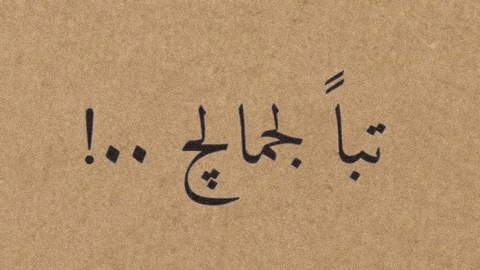 تباً لجمالچ ..!